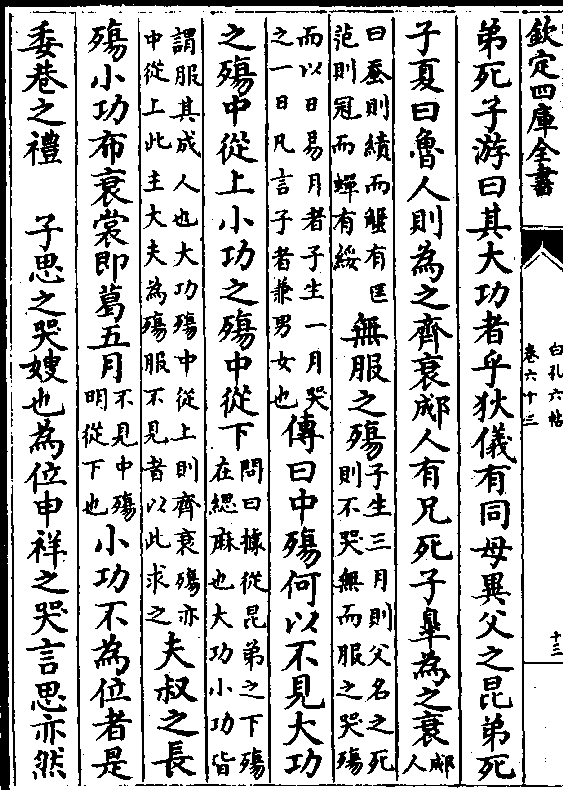 欽定四庫全書
白孔六帖
卷六十三
十三
弟死子游曰其大功者乎狄儀有同母異父之昆弟死
子夏曰魯人則為之齊衰郕人有兄死子臯為之衰郕人
曰蚕則績而蟹有匡范則冠而蟬有綏無服之殤子生三月則父名之死則不哭無而服之哭殤
而以日易月者子生一月哭之一日凡言子者兼男女也傳曰中殤何以不見大功
之殤中從上小功之殤中從下問曰據從昆弟之下殤在緦麻也大功小功皆
謂服其成人也大功殤中從上則齊衰殤亦中從上此主大夫為殤服不見者以此求之夫叔之長
殤小功布衰裳即葛五月不見中殤明從下也小功不為位者是
委巷之禮　子思之哭嫂也為位申祥之哭言思亦然